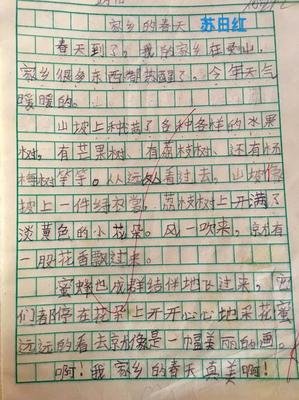 家乡的春天 苏日红
春天到了，我的家乡在灵山，
家乡很多东西都苏醒了。今年天气
暖暖的。
山坡上种满了各种各样的水果
树，有芒果树、有荔枝树、还有杨
梅树等等。从远处看过去，山坡像
披上一件绿衣裳，荔枝树上开满了
淡黄色的小花朵。风一吹来，就有
一股花香飘过来。
蜜蜂也成群结伴地飞过来，它
们都停在花朵上开开心心地采花蜜
远远的看去就像是一幅美丽的画。
啊！我家乡的春天真美啊！